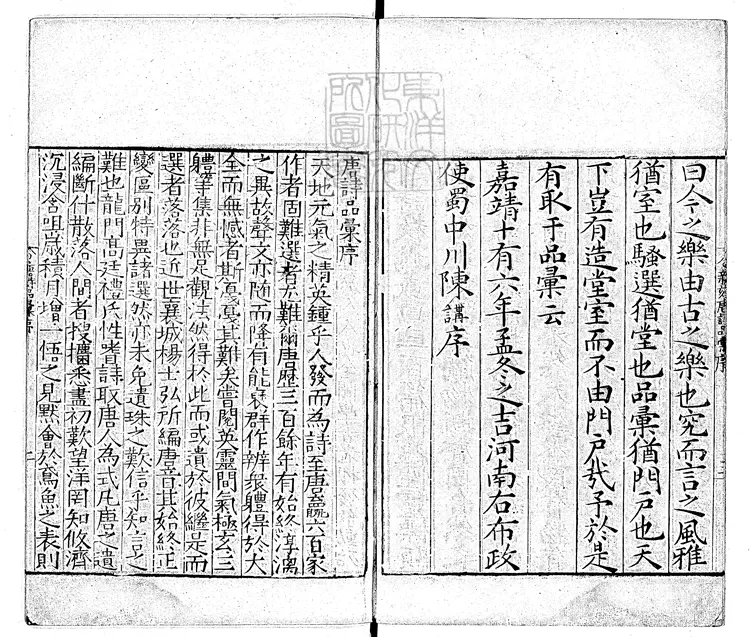 曰今之樂由古之樂也究而言之風雅
猶室也騷選猶堂也品彙猶門戶也天
下豈有造堂室而不由門戶哉予於是
有取于品彙云
嘉靖十有六年孟冬之吉河南右布政
使蜀中川陳講序
唐詩品彙序
天地元氣之精英鍾乎人發而為詩至唐贏六百家
作者固難選者尤難爾唐歷三百餘年有始終淳漓
之異故聲文亦隨而降有能裒群作辨眾體得於大
全而無憾者斯戛戛其難矣嘗閱英靈間氣極玄三
體等集非無足觀法然得於此而或遺於彼繼是而
選者落落也近世襄城楊士弘所編唐音其始終正
變區別特異諸選然亦未免遺珠之歎信乎知言之
難也龍門高廷禮氏性嗜詩取唐人為式凡唐之遺
編斷什散落人間者搜攟悉盡初歎望洋罔知攸濟
沉浸含咀歲積月增一悟之見默會於鳶魚之表則
東洋文化研究所圖